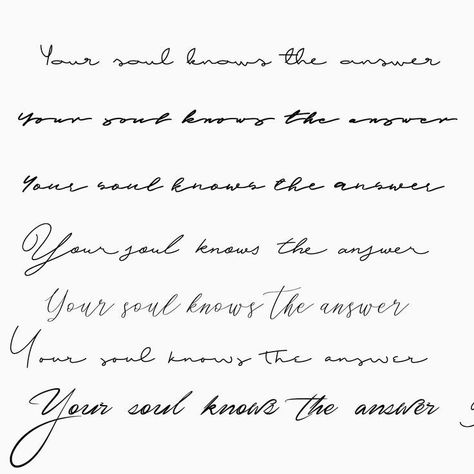 Your soul knows the answer
your soul knows the answer
Your soul knows the answer
Your soul knows the answer
Your soul knows the answer
Your soul knows the answer
Your soul knows the answer